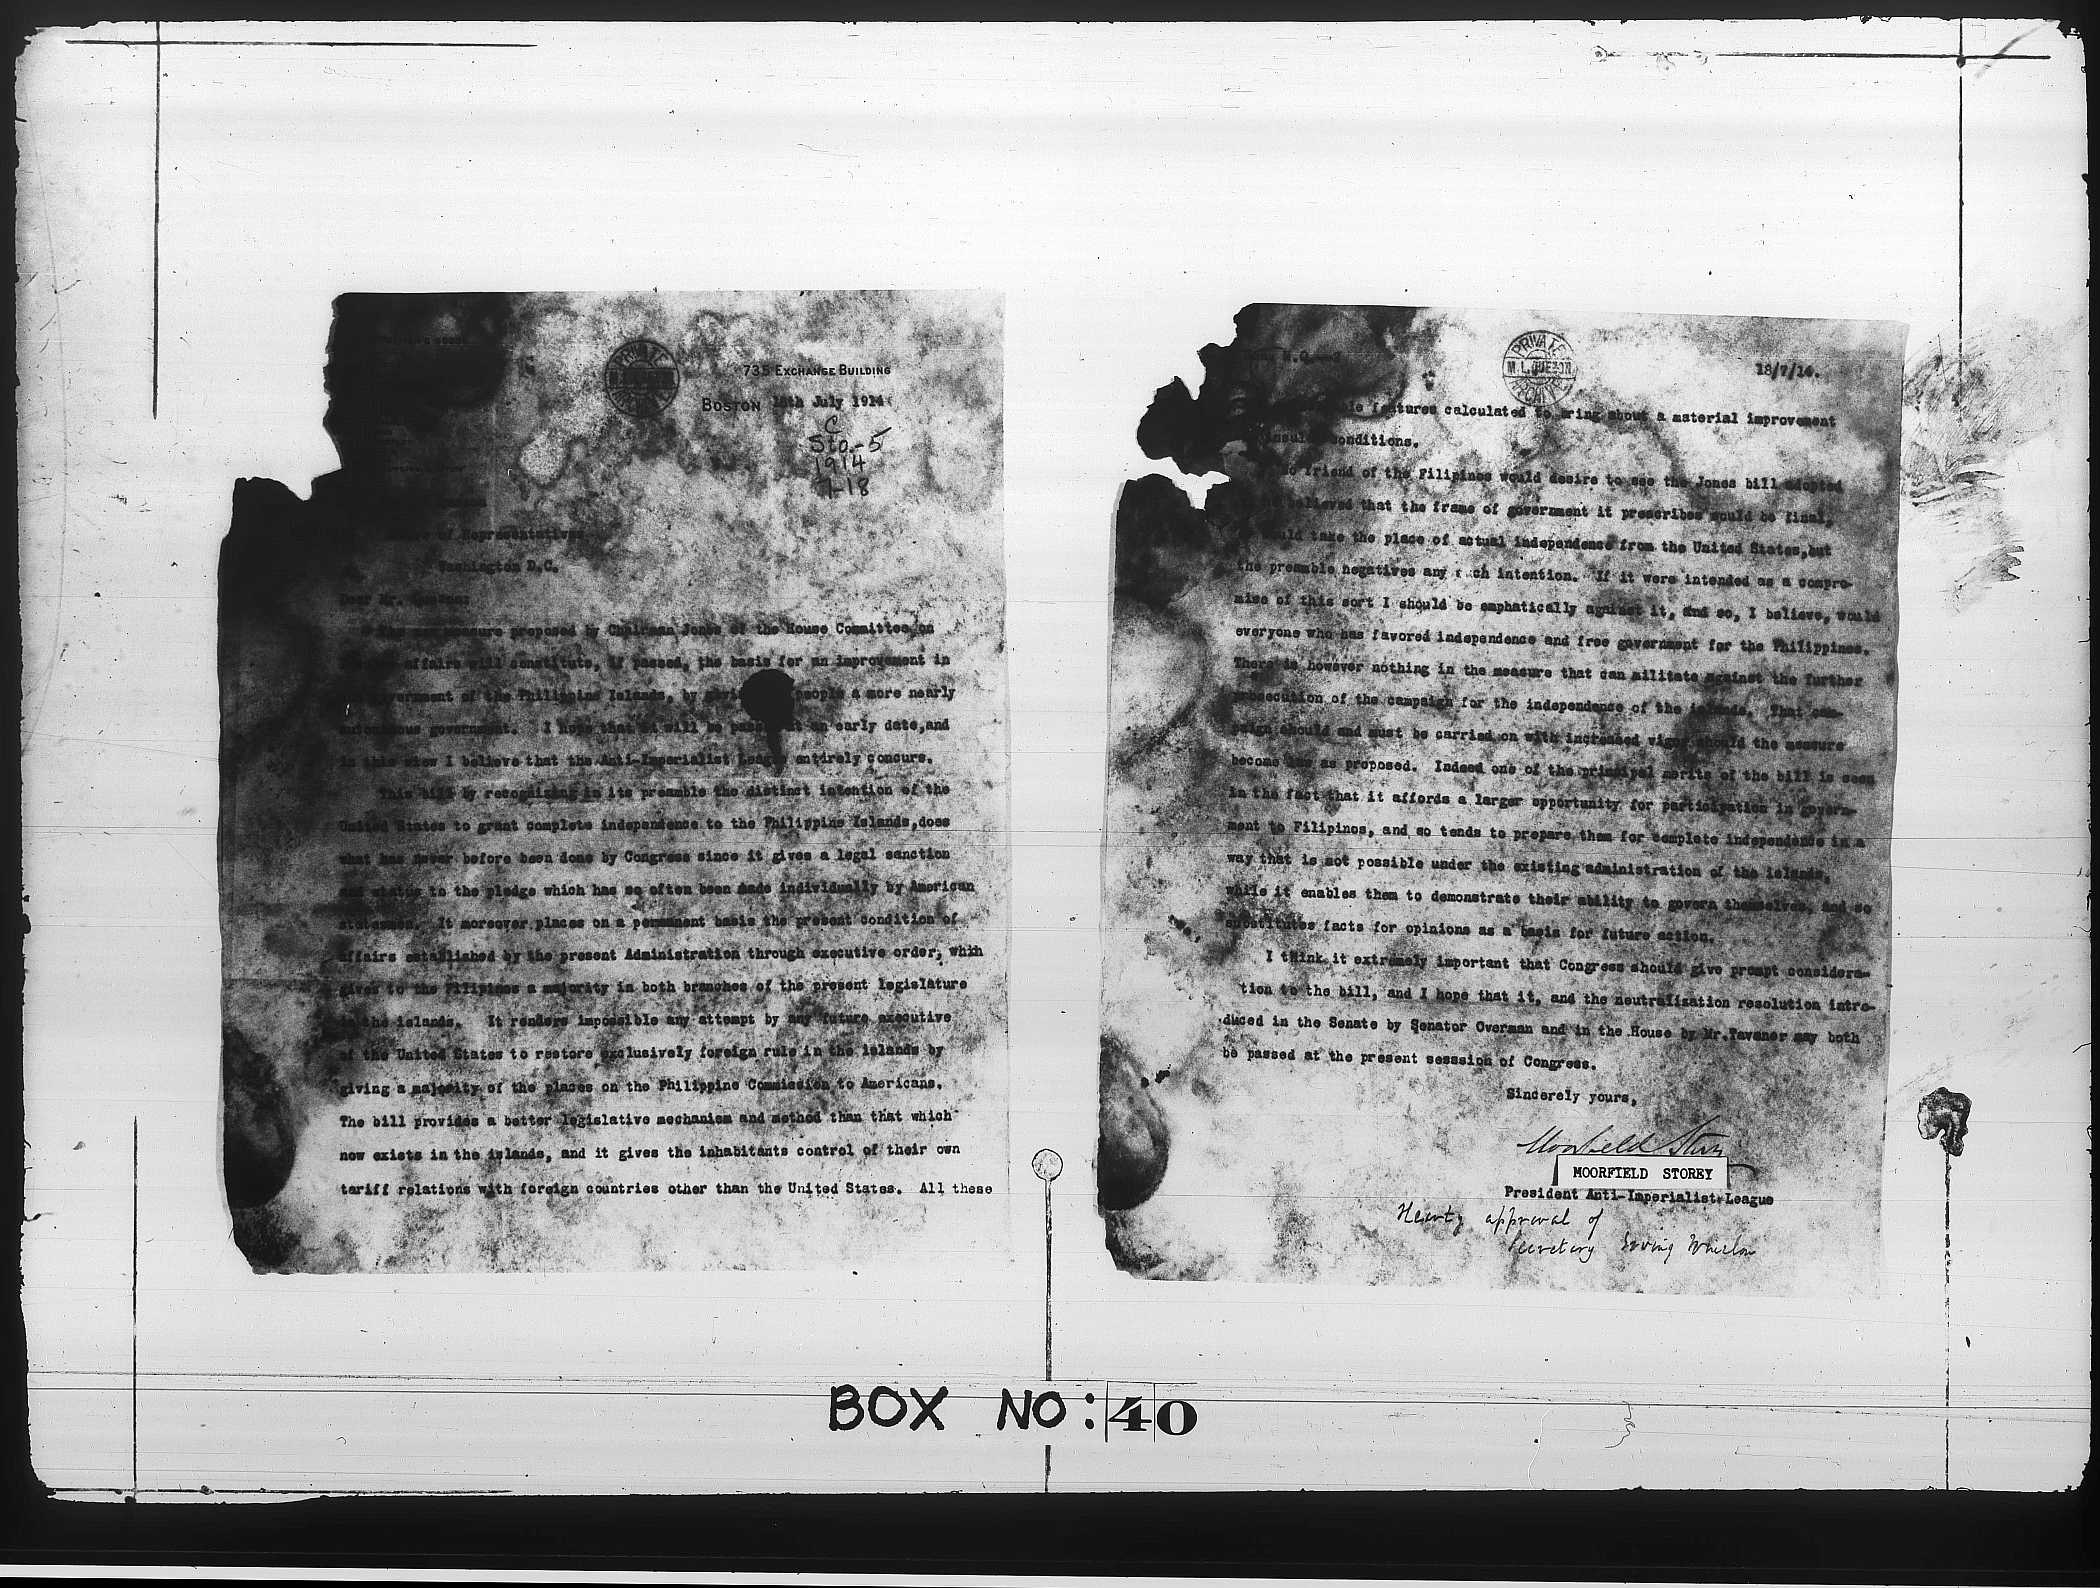 735 EXCHANGE BUILDING
PRIVATE
BOSTON 18th July 1914
C
Sto.-5
1914
7-18
of Representatives
Washington D.C.
Dear Mr.
measure proposed by Chairman Jones of the House Committee on
affairs will constitute, if passed, the basis for an improvement in
government of the Philippine Islands, by people a more nearly
autonomous government. I hope that it will be at an early date,and
in this view I believe that the Anti-Imperialist League entirely concurs.
This bill by recognizing in its preamble the distinct intention of the
United States to grant complete independence to the Philippine Islands,does
what has never before been done by Congress since it gives a legal sanction
and status to the pledge which has so often been made individually by American
statesmen. It moreover places on a permanent basis the present condition of
affairs established by the present Administration through executive order, whih
gives to the Filipinos a majority in both branches of the present legislature
in the islands. It renders impossible any attempt by any future executive
of the United States to restore exclusively foreign rule in the islands by
giving a majority of the places on the Philippine Commission to Americans.
The bill provides a better legislative mechanism and method than that which
now exists in the islands, and it gives the inhabitants control of their own
tariff relations with foreign countries other than the United States. All these
PRIVATE
M.L.QUEZON
18/7/14.
features calculated to bring about a material improvement
conditions.
friend of the Filipinos would desire to see the Jones bill adopted
believed that the frame of government it prescribes would be final,
would take the place of actual independence from the United States,but
the preamble negatives any such intention. If it were intended as a compro-
mise of this sort I should be emphatically against it, and so, I believe, would
everyone who has favored independence and free government for the Philippines.
There is however nothing in the measure that can militate against the further
prosecution of the campaign for the independence of the islands. That cam-
paign should and must be carried on with increased vigor should the measure
become law as proposed. Indeed one of the principal merits of the bill is seen
in the fact that it affords a larger opportunity for participation in govern-
ment to Filipinos, and so tends to prepare them for complete independence in a
way that is not possible under the existing administration of the islands,
while it enables them to demonstrate their ability to govern themselves, and so
substitutes facts for opinions as a basis for future action.
I think it extremely important that Congress should give prompt considera-
tion to the bill, and I hope that it, and the neutralization resolution intro-
duced in the Senate by Senator Overman and in the House by Mr.Tavaner may both
be passed at the present sesssion of Congress.
Sincerely yours,
Moorfield Storey
MOORFIELD STOREY
President Anti-Imperialist League
Hearty approval of
Secretary Erving Winslow
BOX NO: 40